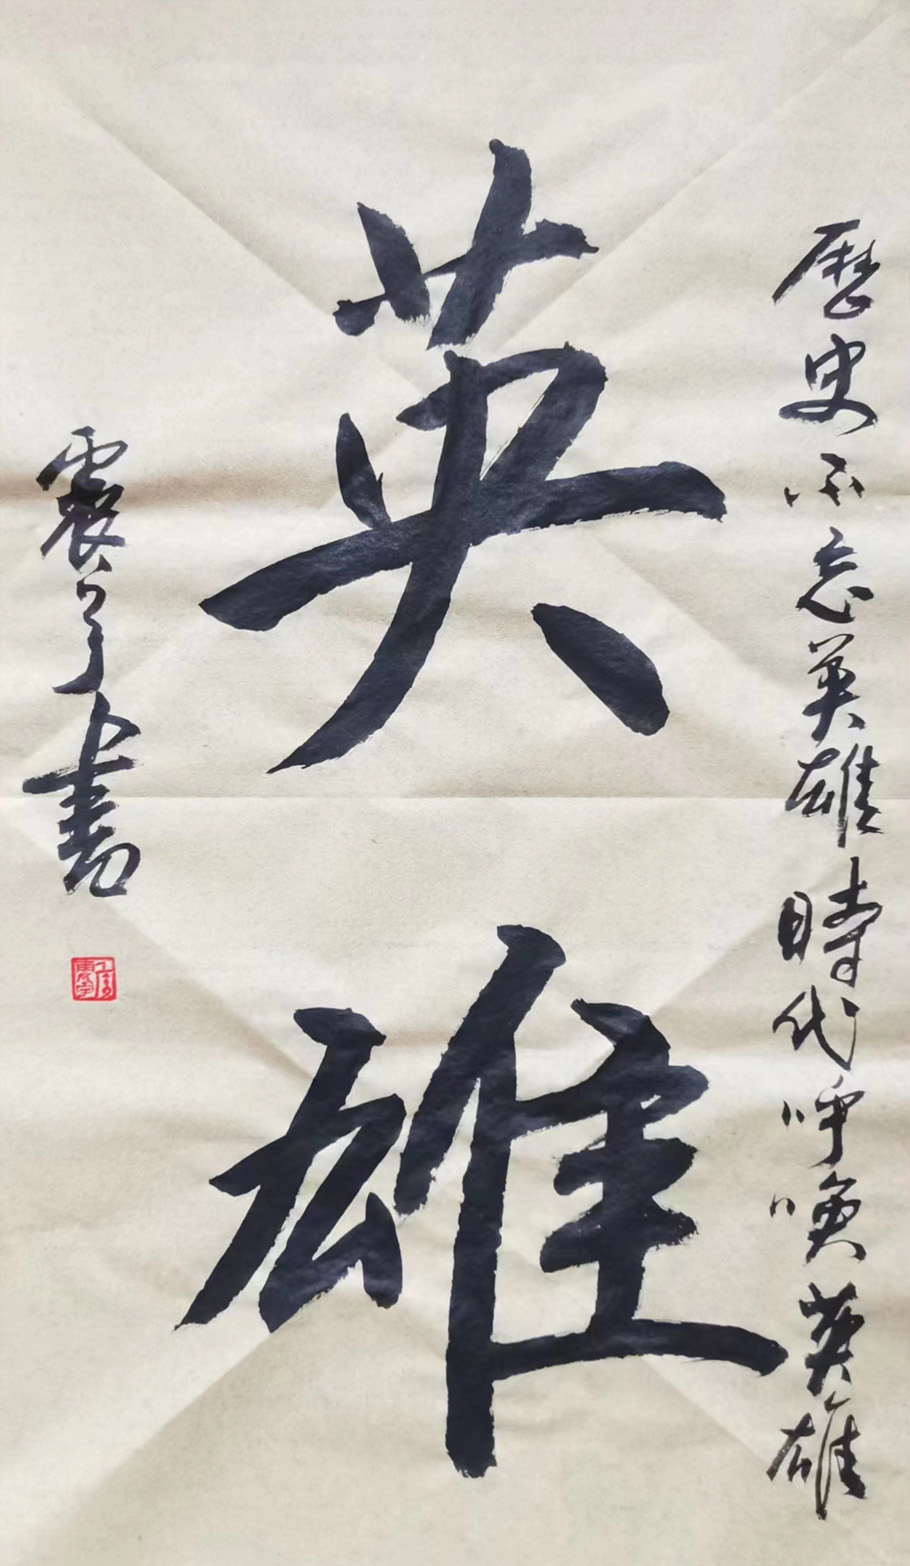 歷史不忘英雄時代呼喚英雄
英雄
震宇書